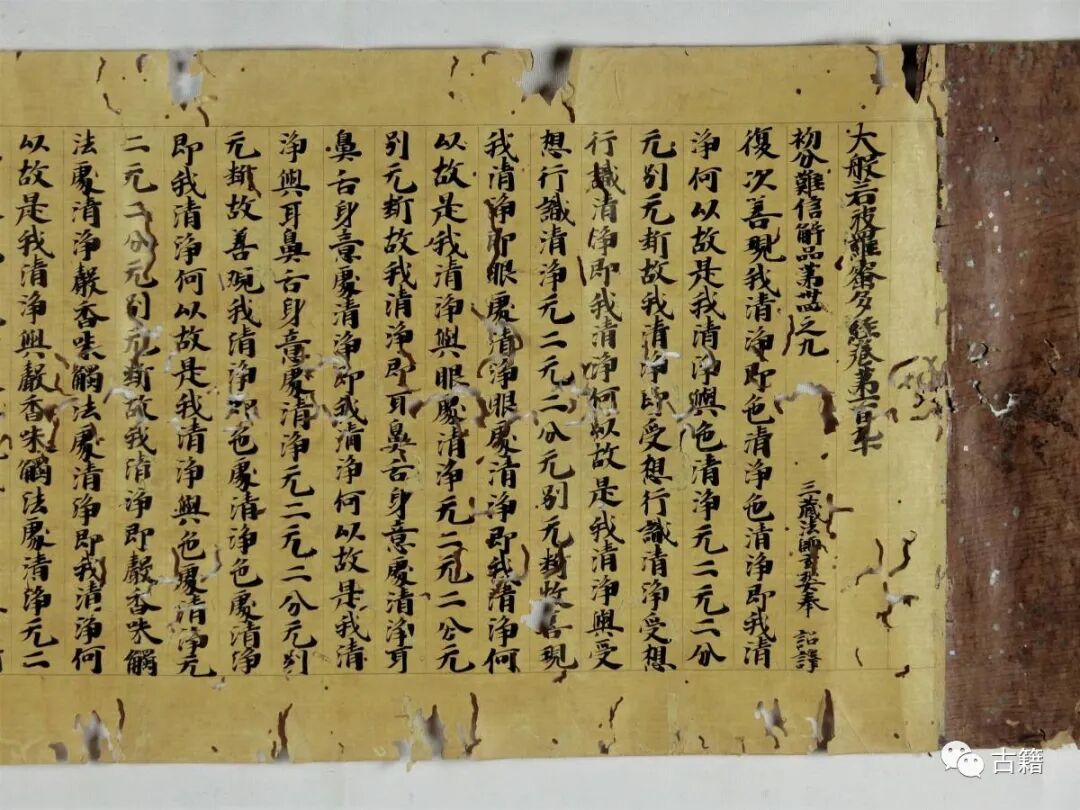 大般若波羅蜜多經卷第一百九十
初分難信解品第卅四之九 三藏法師玄奘奉 詔譯
復次善現我清淨即色清淨色清淨即我清
淨何以故是我清淨與色清淨无二无二分
无別无斷故我清淨即受想行識清淨受想
行識清淨即我清淨何以故是我清淨與受
想行識清淨无二无二分无別无斷故善現
我清淨即眼處清淨眼處清淨即我清淨何
以故是我清淨與眼處清淨无二无二分无
別无斷故我清淨即耳鼻舌身意處清淨耳
鼻舌身意處清淨即我清淨何以故是我清
淨與耳鼻舌身意處清淨无二无二分无別
无斷故善現我清淨即色處清淨色處清淨
即我清淨何以故是我清淨與色處清淨无
二无二分无別无斷故我清淨即聲香味觸
法處清淨聲香味觸法處清淨即我清淨何
以故是我清淨與聲香味觸法處清淨无二
古籍